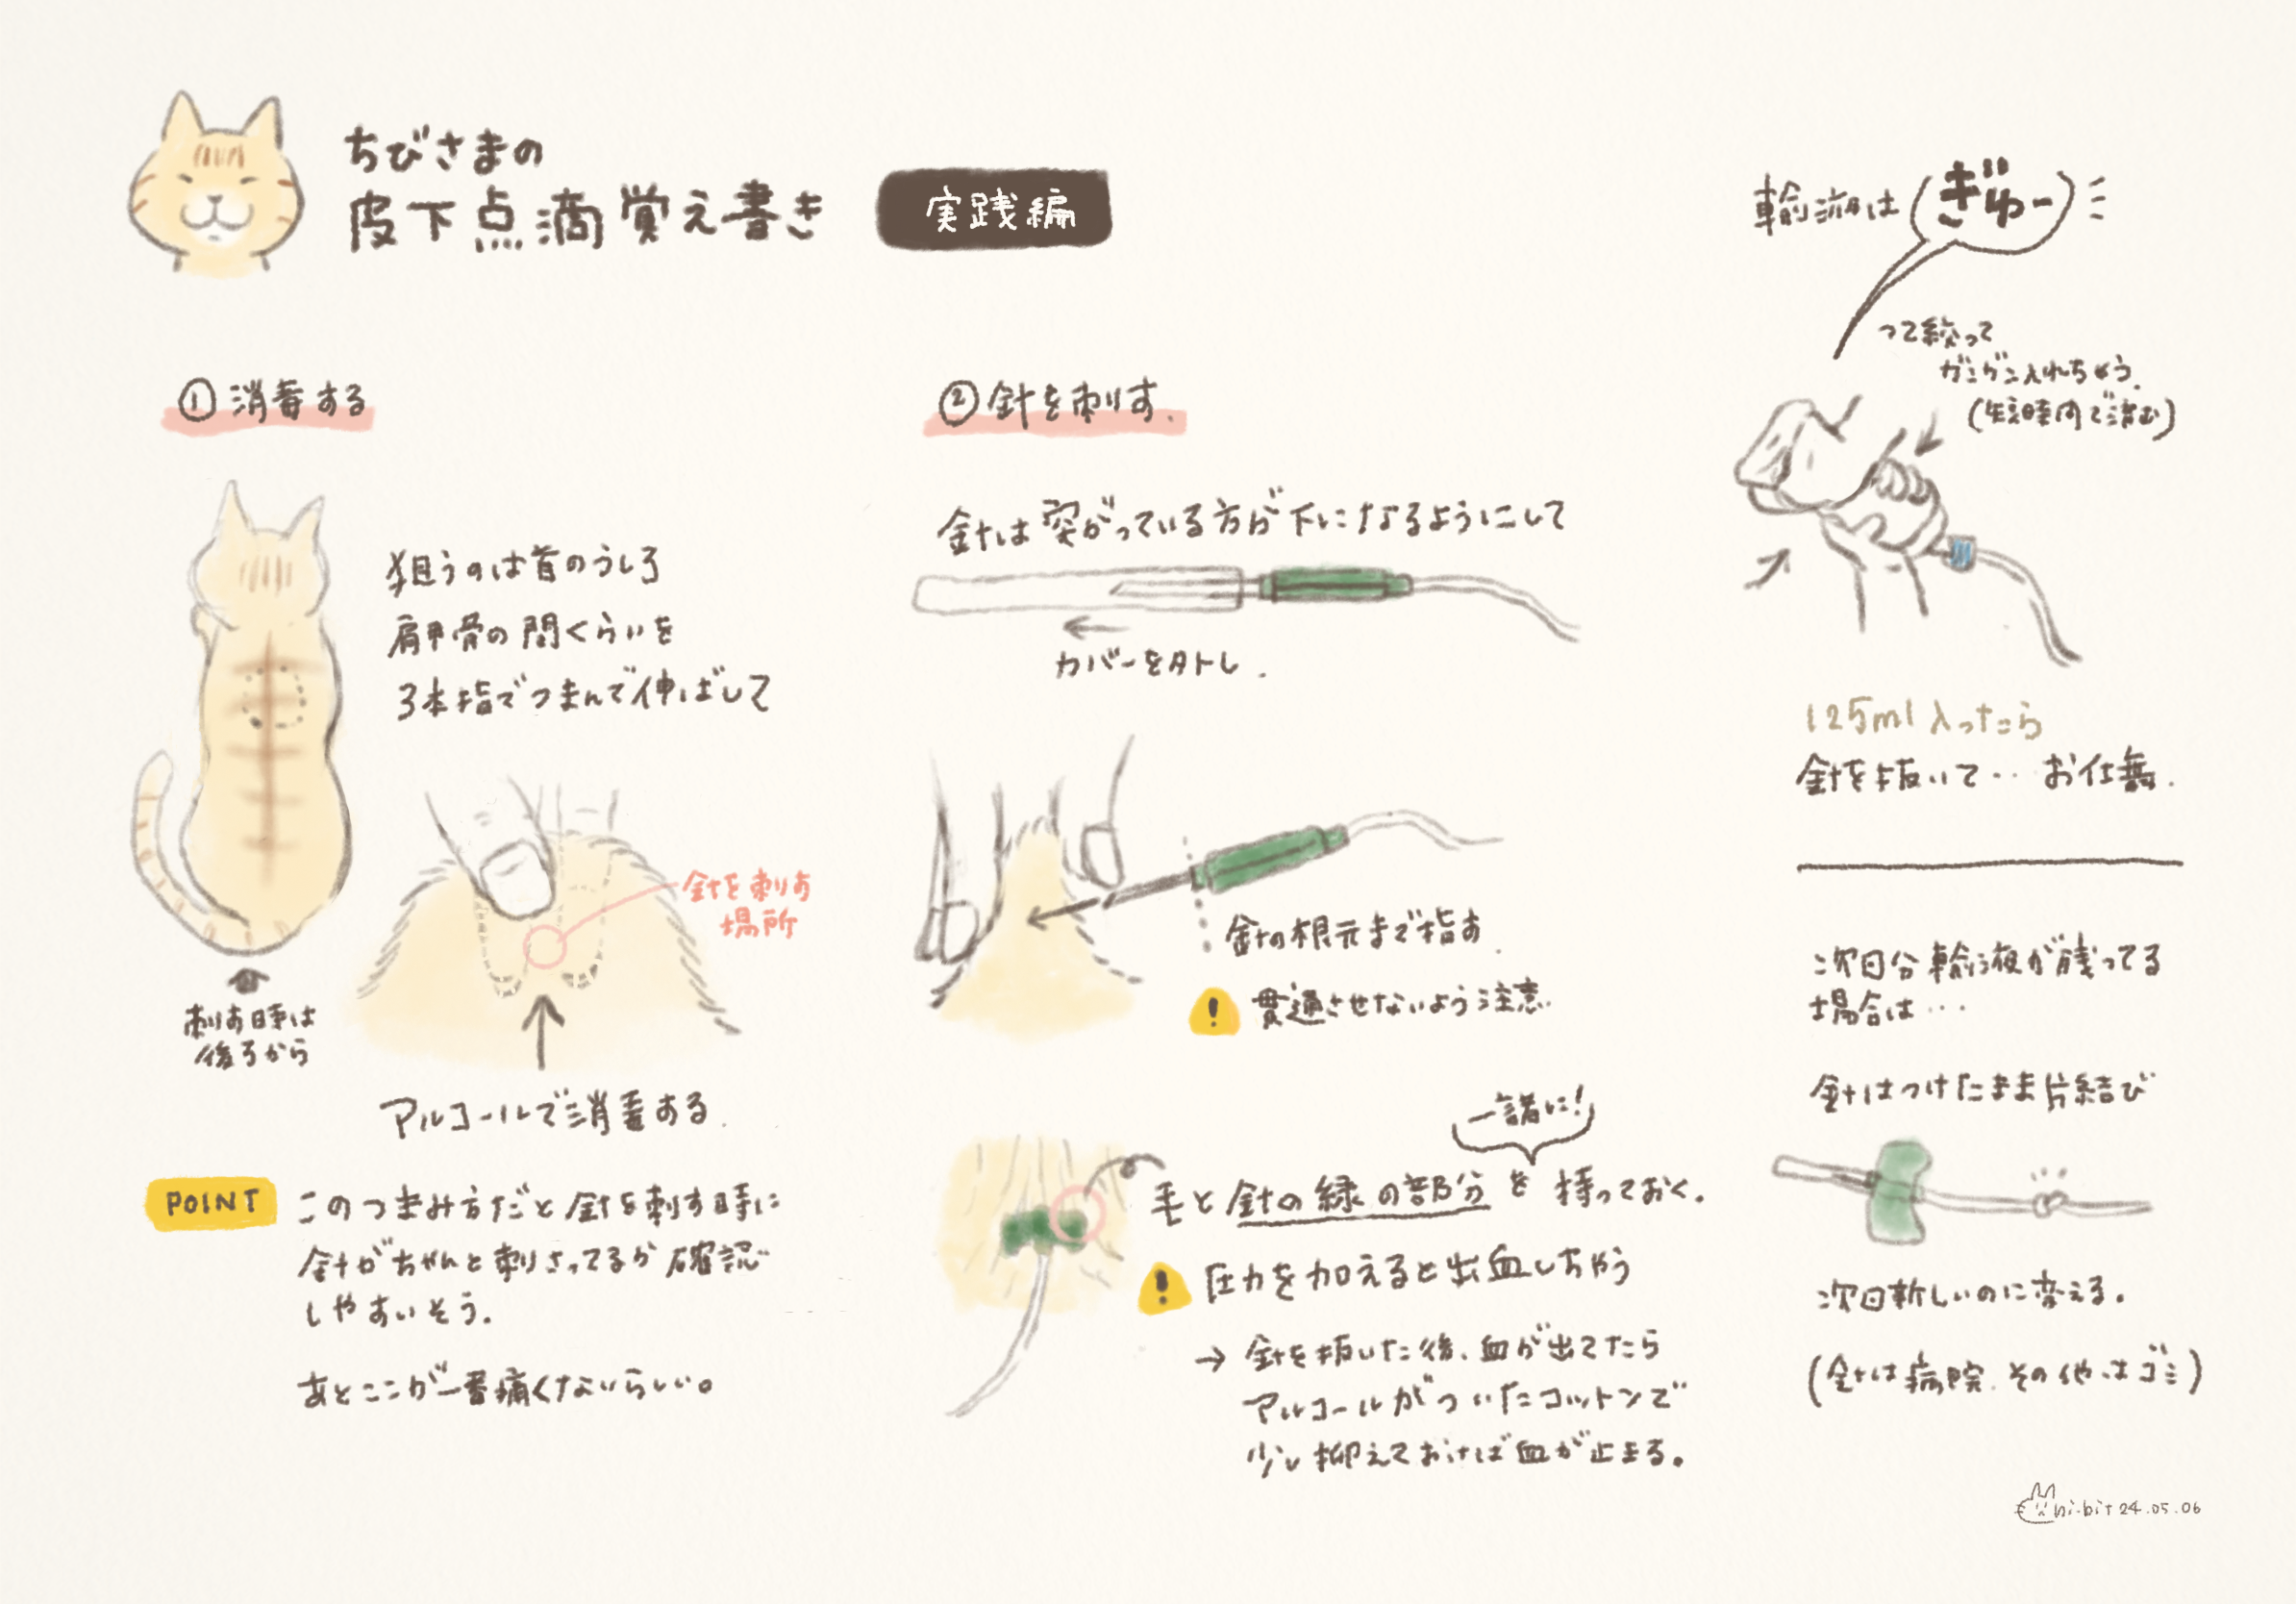 ちびさまの
皮下点滴覚え書き
実践編
① 消毒する
狙うのは首のうしろ
肩甲骨の間くらいを
3本指でつまんで伸ばして
針を刺す
場所
刺す時は
後ろから
アルコールで消毒する.
POINT
このつまみ方だと針を刺す時に
針がちゃんと刺さってるか確認
しやすいそう。
あとここが一番痛くないらしい。
② 針を刺す.
針は突がっている方が下になるようにして
カバーを外し.
針の根元まで指す.
! 貫通させないよう注意.
一諸に!
毛と針の緑の部分を持っておく.
! 圧力を加えると出血しちゃう
→ 針を抜いた後、血が出てたら
アルコールがついたコットンで
少し抑えておけば血が止まる。
輸液は ぎゅー
って絞って
ガンガン入れちゃう.
(短時間で済む)
125ml入ったら
針を抜いて‥‥お仕舞.
次回分輸液が残ってる
場合は‥‥
針はつけたまま片結び
次回新しいのに変える.
(針は病院、その他はゴミ)
hi-bit 24.05.06